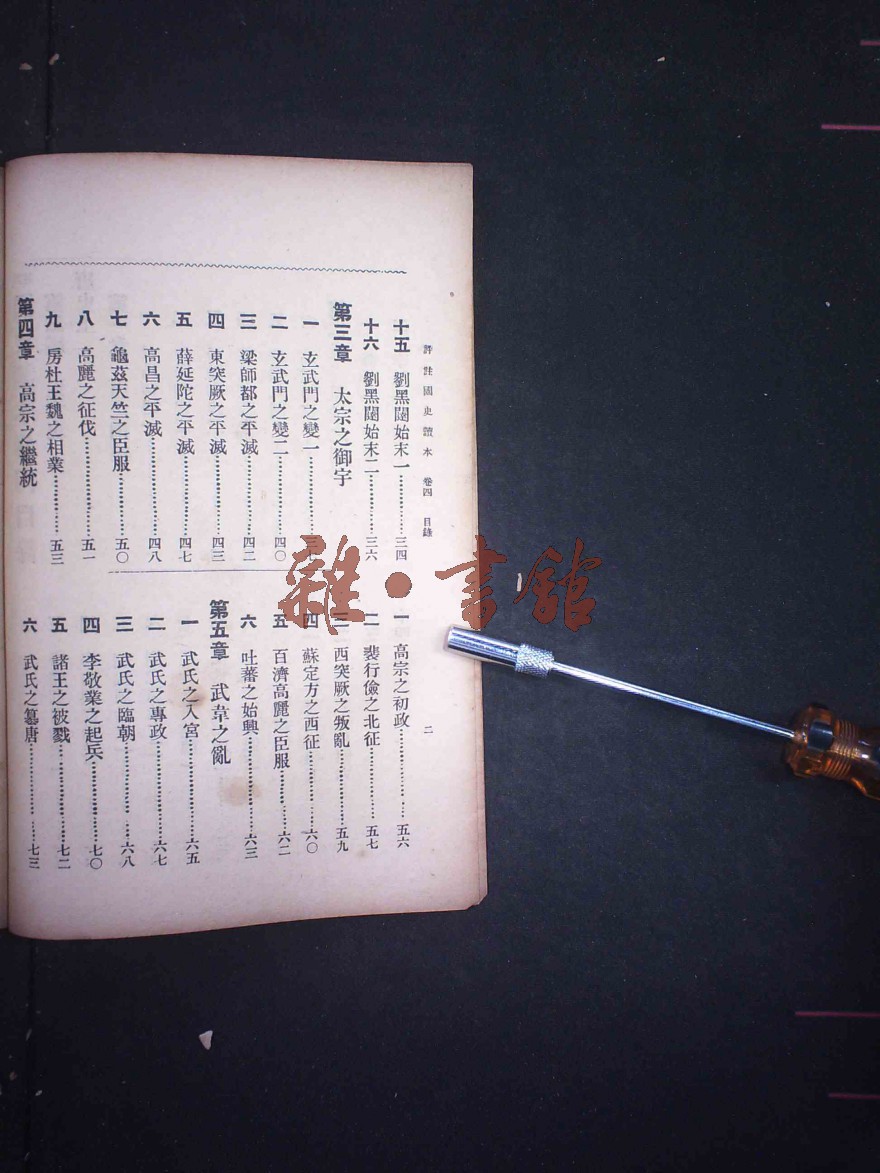 評註國史讀本 卷四 目錄
二
十五 劉黑闥始末一…………三四
十六 劉黑闥始末二…………三六
第三章 太宗之御宇
一 玄武門之變一…………三
二 玄武門之變二…………四〇
三 梁師都之平滅…………四二
四 東突厥之平滅…………四三
五 薛延陀之平滅…………四七
六 高昌之平滅…………四八
七 龜茲天竺之臣服…………五〇
八 高麗之征伐…………五一
九 房杜王魏之相業…………五三
第四章 高宗之繼統
一 高宗之初政…………五六
二 裴行儉之北征…………五七
三 西突厥之叛亂…………五九
四 蘇定方之西征…………六〇
五 百濟高麗之臣服…………六二
六 吐蕃之始興…………六三
第五章 武韋之亂
一 武氏之入宮…………六五
二 武氏之專政…………六七
三 武氏之臨朝…………六八
四 李敬業之起兵…………七〇
五 諸王之被戮…………七二
六 武氏之篡唐…………七三
雜·書館